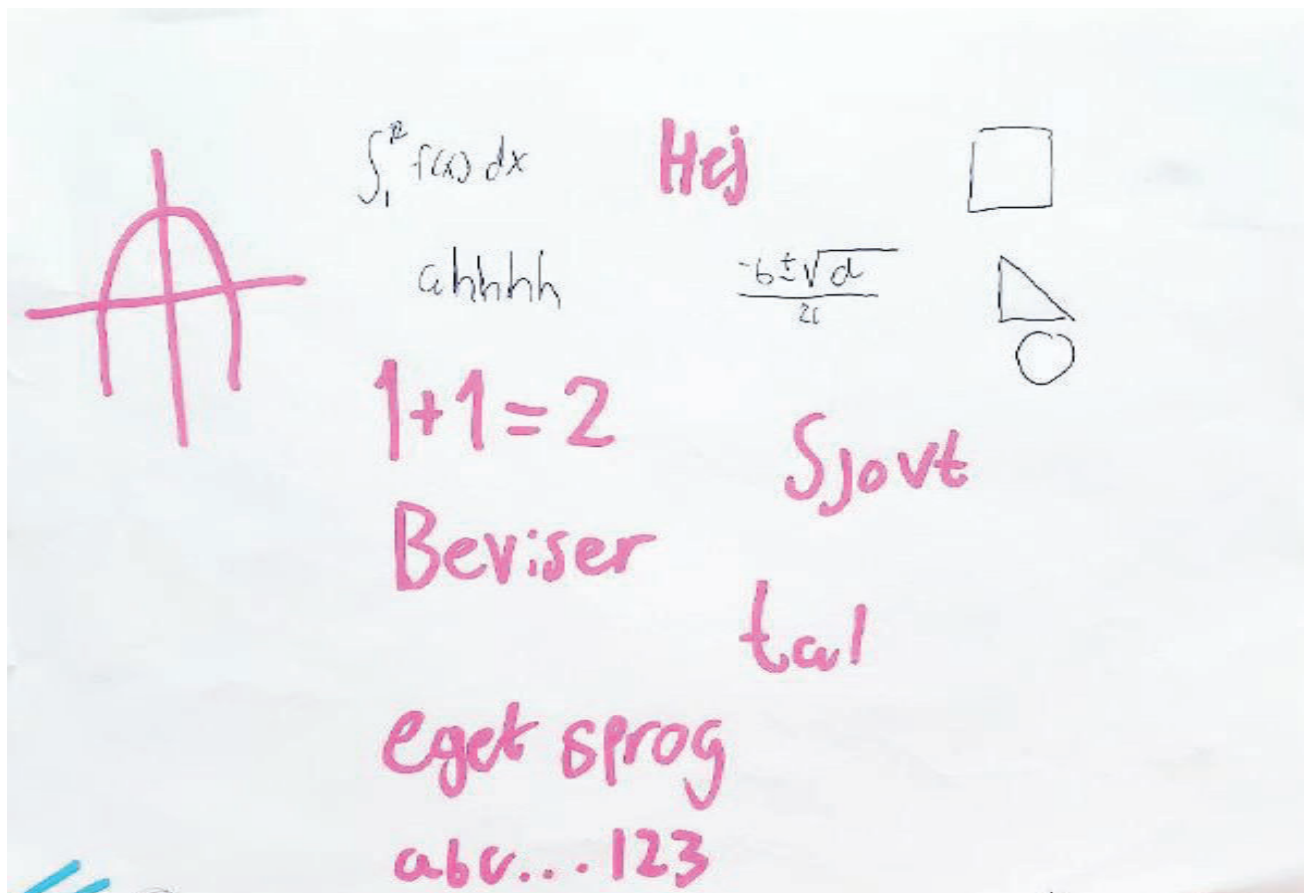 ∫₁ f(x) dx
Hej
ahhhh
-b ± √d
1+1=2
Sjovt
Beviser
tal
eget sprog
abc...123